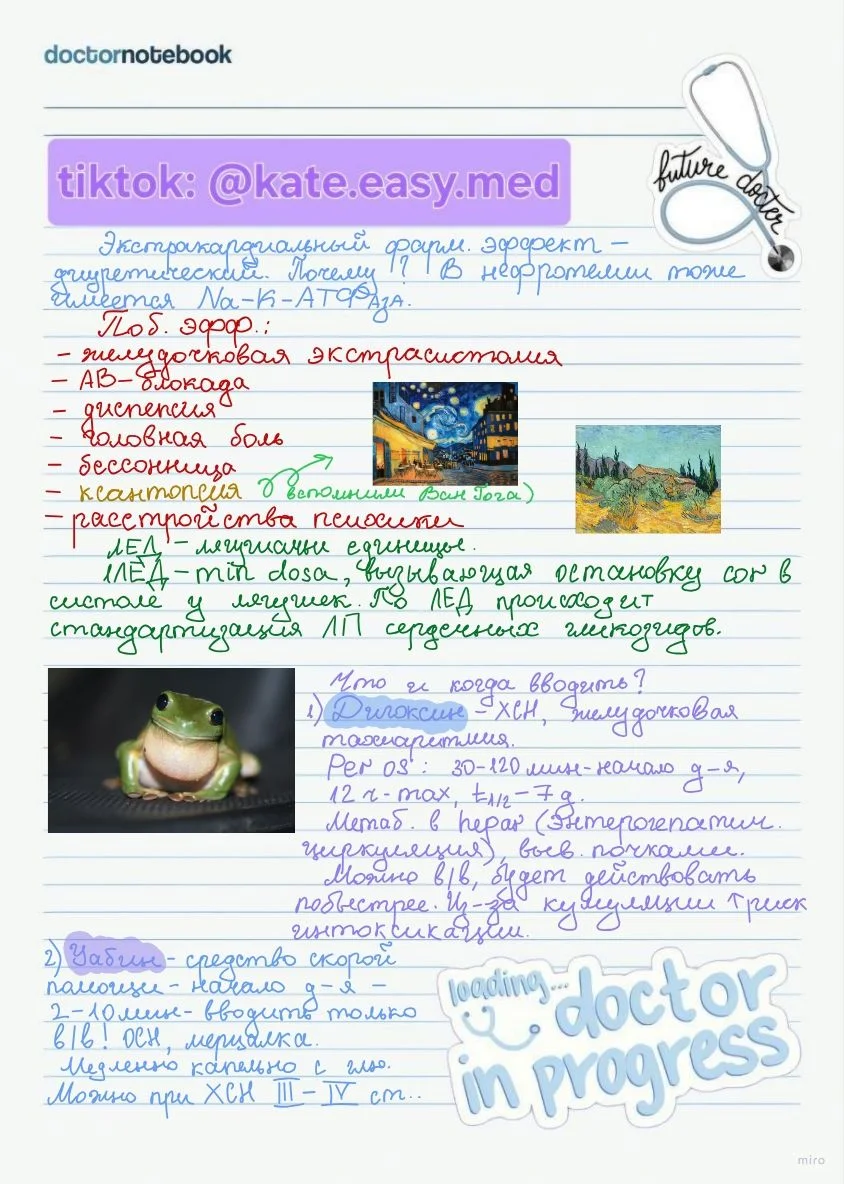 doctornotebook
future doctor
tiktok: @kate.easy.med
Экстракардиальный фарм. эффект –
диуретический. Почему? В нефротелии тоже
имеется Na-K-АТФаза.
Поб. эфф.:
– желудочковая экстрасистолия
– АВ-блокада
– диспепсия
– головная боль
– бессонница
– ксантопсия вспомнили Ван Гога)
– расстройства психики
ЛЕД – лягушачьи единицы.
1ЛЕД – min dosa, вызывающая остановку cor в
систоле у лягушек. По ЛЕД происходит
стандартизация ЛП сердечных гликозидов.
Что и когда вводить?
1) Дигоксин – ХСН, желудочковая
тахиаритмия.
Per os: 30-120 мин-начало д-я,
12 ч-max, t1/2 – 7 д.
Метаб. в hepar (энтерогепатич.
циркуляция), выв. почками.
Можно в/в, будет действовать
побыстрее. Из-за кумуляции ↑ риск
интоксикации.
2) Уабаин – средство скорой
помощи – начало д-я –
2-10 мин – вводить только
в/в! ОСН, мерцалка.
Медленно капельно с глю.
Можно при ХСН III – IV ст..
loading... doctor
in progress
miro